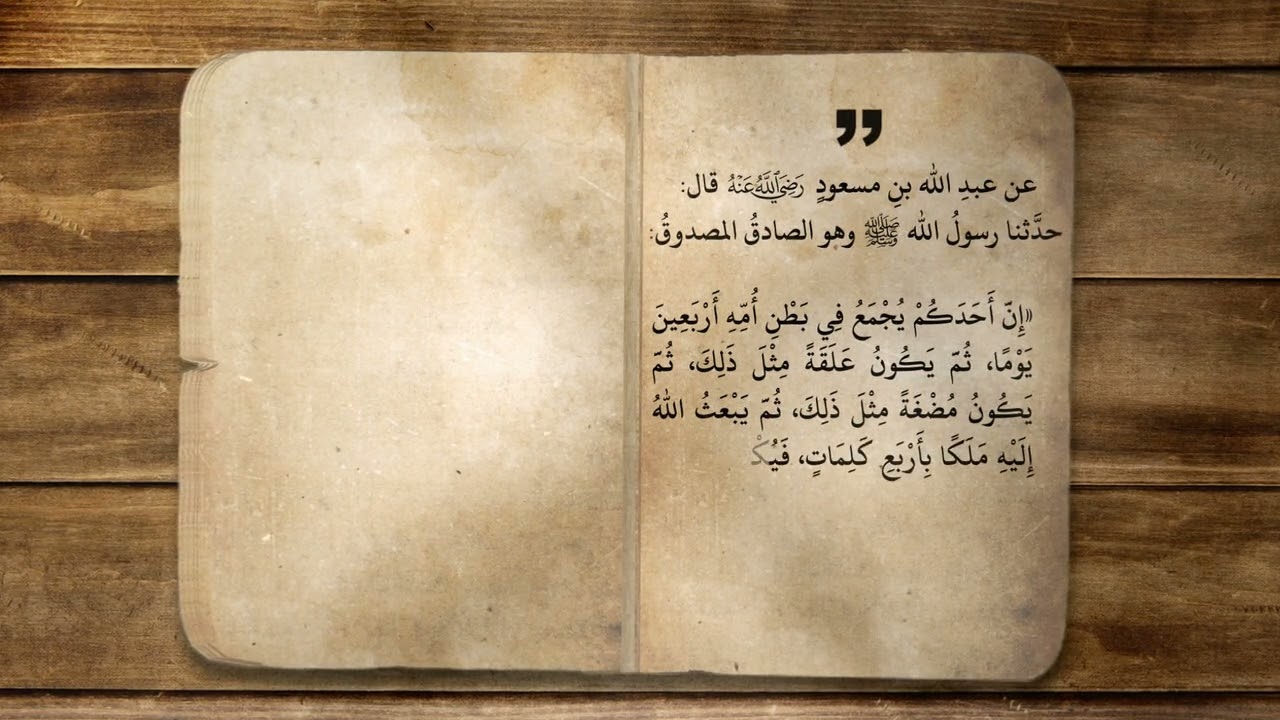 ”
عن عبدِ الله بنِ مسعودٍ رَضِيَ اللَّهُ عَنْهُ قال:
حدَّثنا رسولُ الله ﷺ وهو الصادقُ المصدوقُ:
«إِنّ أَحَدَكُمْ يُجْمَعُ فِي بَطْنِ أُمِّهِ أَرْبَعِينَ
يَوْمًا، ثُمّ يَكُونُ عَلَقَةً مِثْلَ ذَلِكَ، ثُمّ
يَكُونُ مُضْغَةً مِثْلَ ذَلِكَ، ثُمّ يَبْعَثُ اللهُ
إِلَيْهِ مَلَكًا بِأَرْبَعِ كَلِمَاتٍ، فَيُكْ